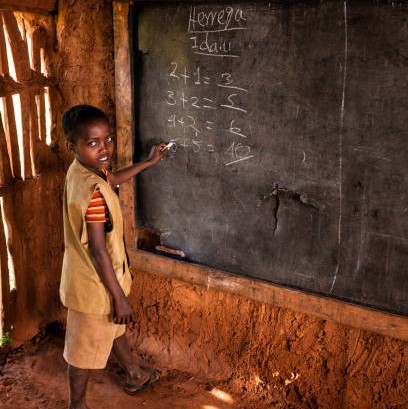 Herrega
2+1=3
3+2=5
4+2=6
+5=10